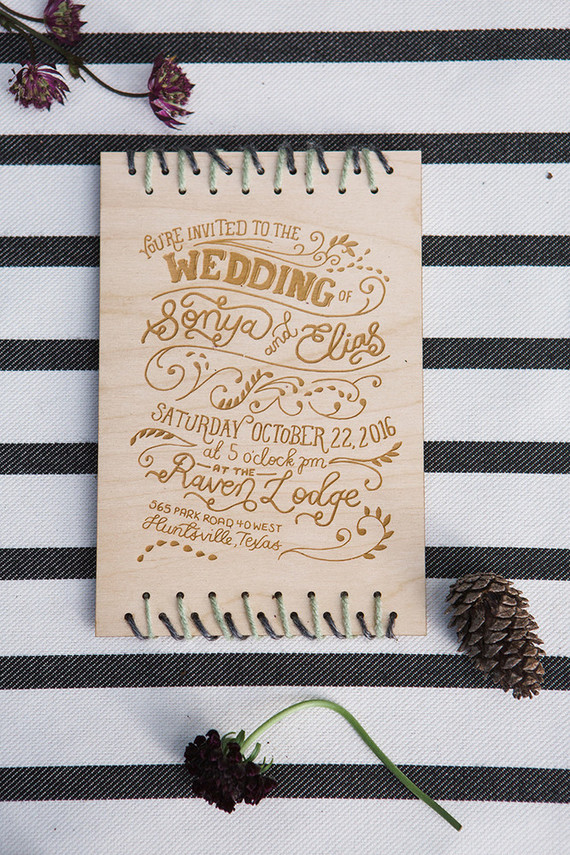 YOU'RE INVITED TO THE
WEDDING OF
Sonya and Elias
SATURDAY OCTOBER 22, 2016
at 5 o'clock pm
AT THE
Raven Lodge
565 PARK ROAD 40 WEST
Huntsville, Texas